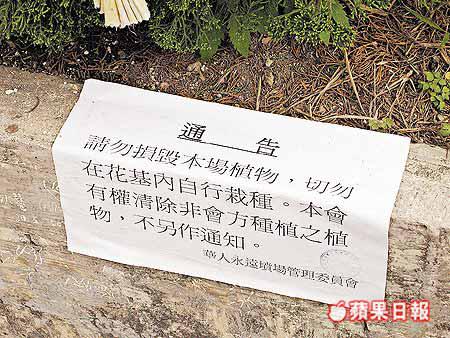 通告
請勿損毀本場植物，切勿
在花基內自行栽種。本會
有權清除非會方種植之植
物，不另作通知。
華人永遠墳場管理委員會
蘋果日報